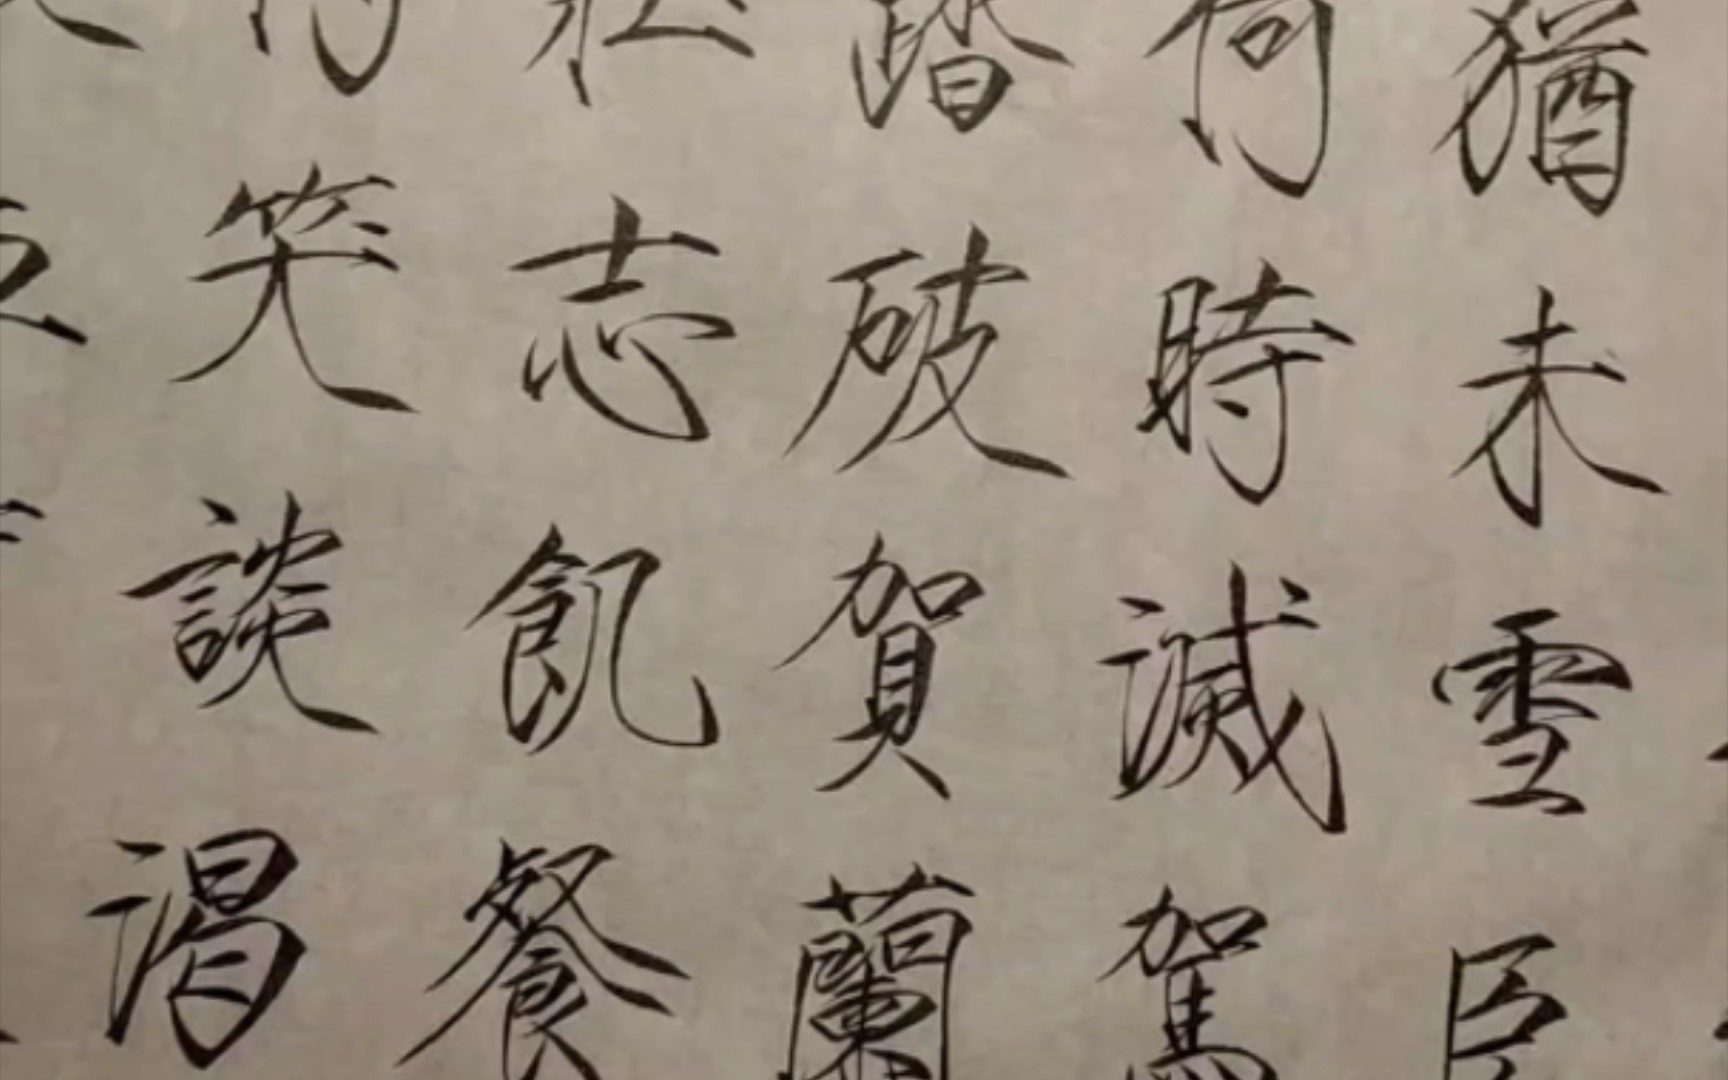 猶未雪臣
何時滅駕
踏破賀蘭
壮志飢餐
笑談渴